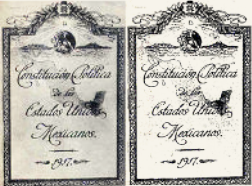 Constitución Política
de los
Estados Unidos
Mexicanos.
1917.
Constitución Política
de los
Estados Unidos
Mexicanos.
1917.